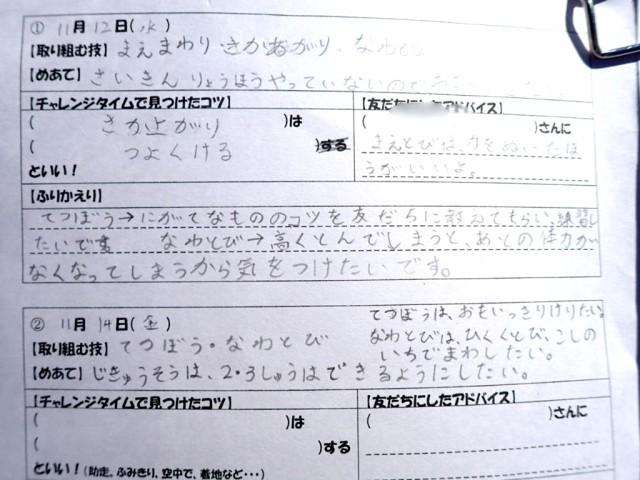 ① 11月12日(水)
【取り組む技】まえまわり・さかあがり、なわとび
【めあて】さいきんりょうほうやっていないので
【チャレンジタイムで見つけたコツ】
( さか上がり )は
( つよくける )する
といい!
【友だちにしたアドバイス】
( )さんに
まえとびは、力をぬいたほ
うがいいよ。
【ふりかえり】
てつぼう→にがてなもののコツを友だちに教えてもらい、練習し
たいです なわとび→高くとんでしまうと、あとの体力が
なくなってしまうから気をつけたいです。
② 11月14日(金)
【取り組む技】てつぼう・なわとび
てつぼうは、おもいっきりけりたい。
なわとびは、ひくくとび、こしの
いちでまわしたい。
【めあて】じきゅうそうは、2・3しゅうはできるようにしたい。
【チャレンジタイムで見つけたコツ】
( )は
( )する
といい!(助走、ふみきり、空中で、着地など・・・)
【友だちにしたアドバイス】
( )さんに